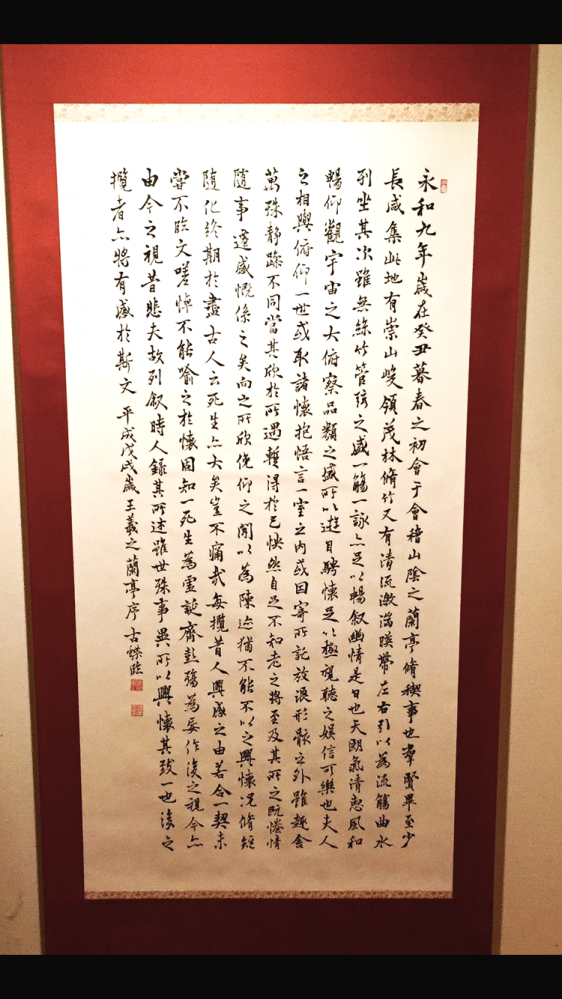 永和九年歲在癸丑暮春之初會于會稽山陰之蘭亭脩稧事也羣賢畢至少
長咸集此地有崇山峻領茂林脩竹又有清流激湍暎帶左右引以為流觴曲水
列坐其次雖無絲竹管弦之盛一觴一詠亦足以暢叙幽情是日也天朗氣清惠風和
暢仰觀宇宙之大俯察品類之盛所以遊目騁懷足以極視聽之娛信可樂也夫人
之相與俯仰一世或取諸懷抱悟言一室之内或因寄所託放浪形骸之外雖趣舍
萬殊靜躁不同當其欣於所遇暫得於己快然自足不知老之將至及其所之既惓情
隨事遷感慨係之矣向之所欣俛仰之閒以為陳迹猶不能不以之興懷況脩短
隨化終期於盡古人云死生亦大矣豈不痛哉每攬昔人興感之由若合一契未
甞不臨文嗟悼不能喻之於懷固知一死生為虛誕齊彭殤為妄作後之視今亦
由今之視昔悲夫故列叙時人錄其所述雖世殊事異所以興懷其致一也後之
攬者亦將有感於斯文 平成戊戌歲王羲之蘭亭序 古蝶臨